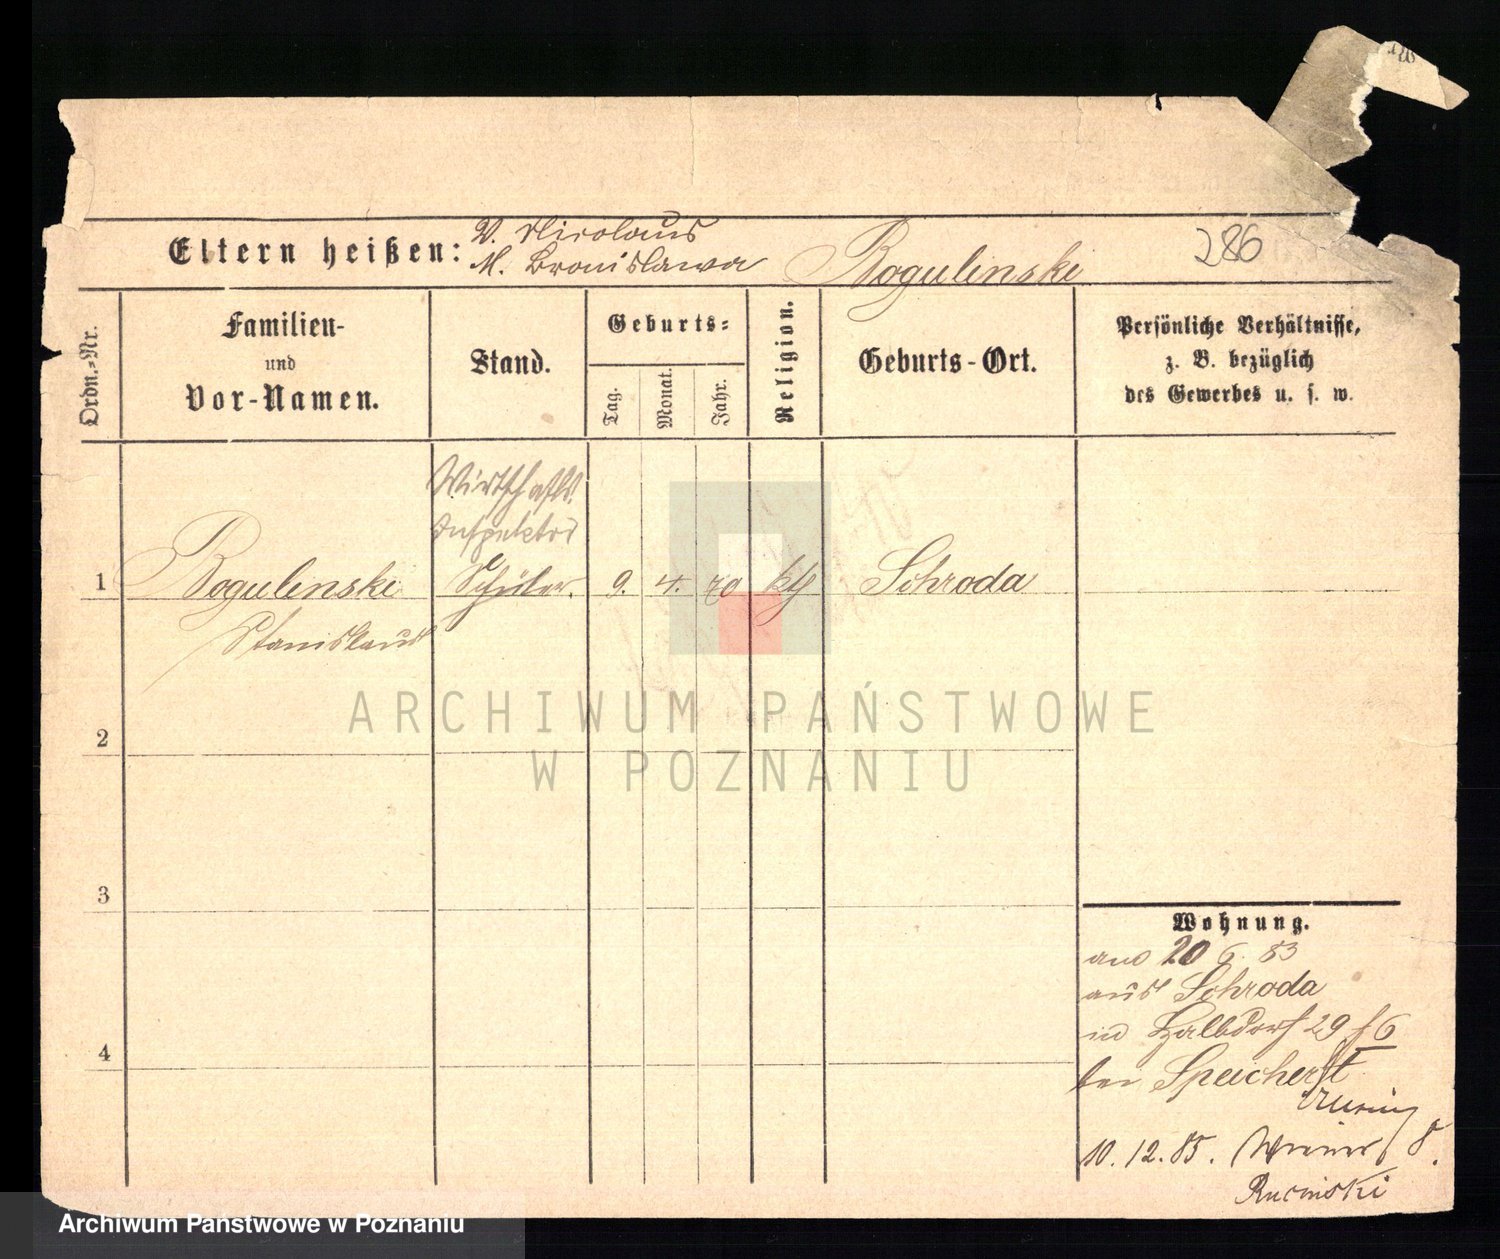 V. Nicolaus
Eltern heißen: M. Bronislawa Rogulinski 286
Ordn.-Nr.
Familien-
und
Vor-Namen.
Stand.
Geburts-
Tag.
Monat.
Jahr.
Religion.
Geburts-Ort.
Persönliche Verhältnisse,
z. B. bezüglich
des Gewerbes u. s. w.
Wirthschafts
Inspektor
1 Rogulinski Schüler. 9. 4. 70 kth Schroda
Stanislaus
2
3
4
Wohnung.
20 6. 83
aus Schroda
in Halbdorf 29 6
bei Speichert
10. 12. 85. 8.
Rucinski
ARCHIWUM PAŃSTWOWE
W POZNANIU
Archiwum Państwowe w Poznaniu